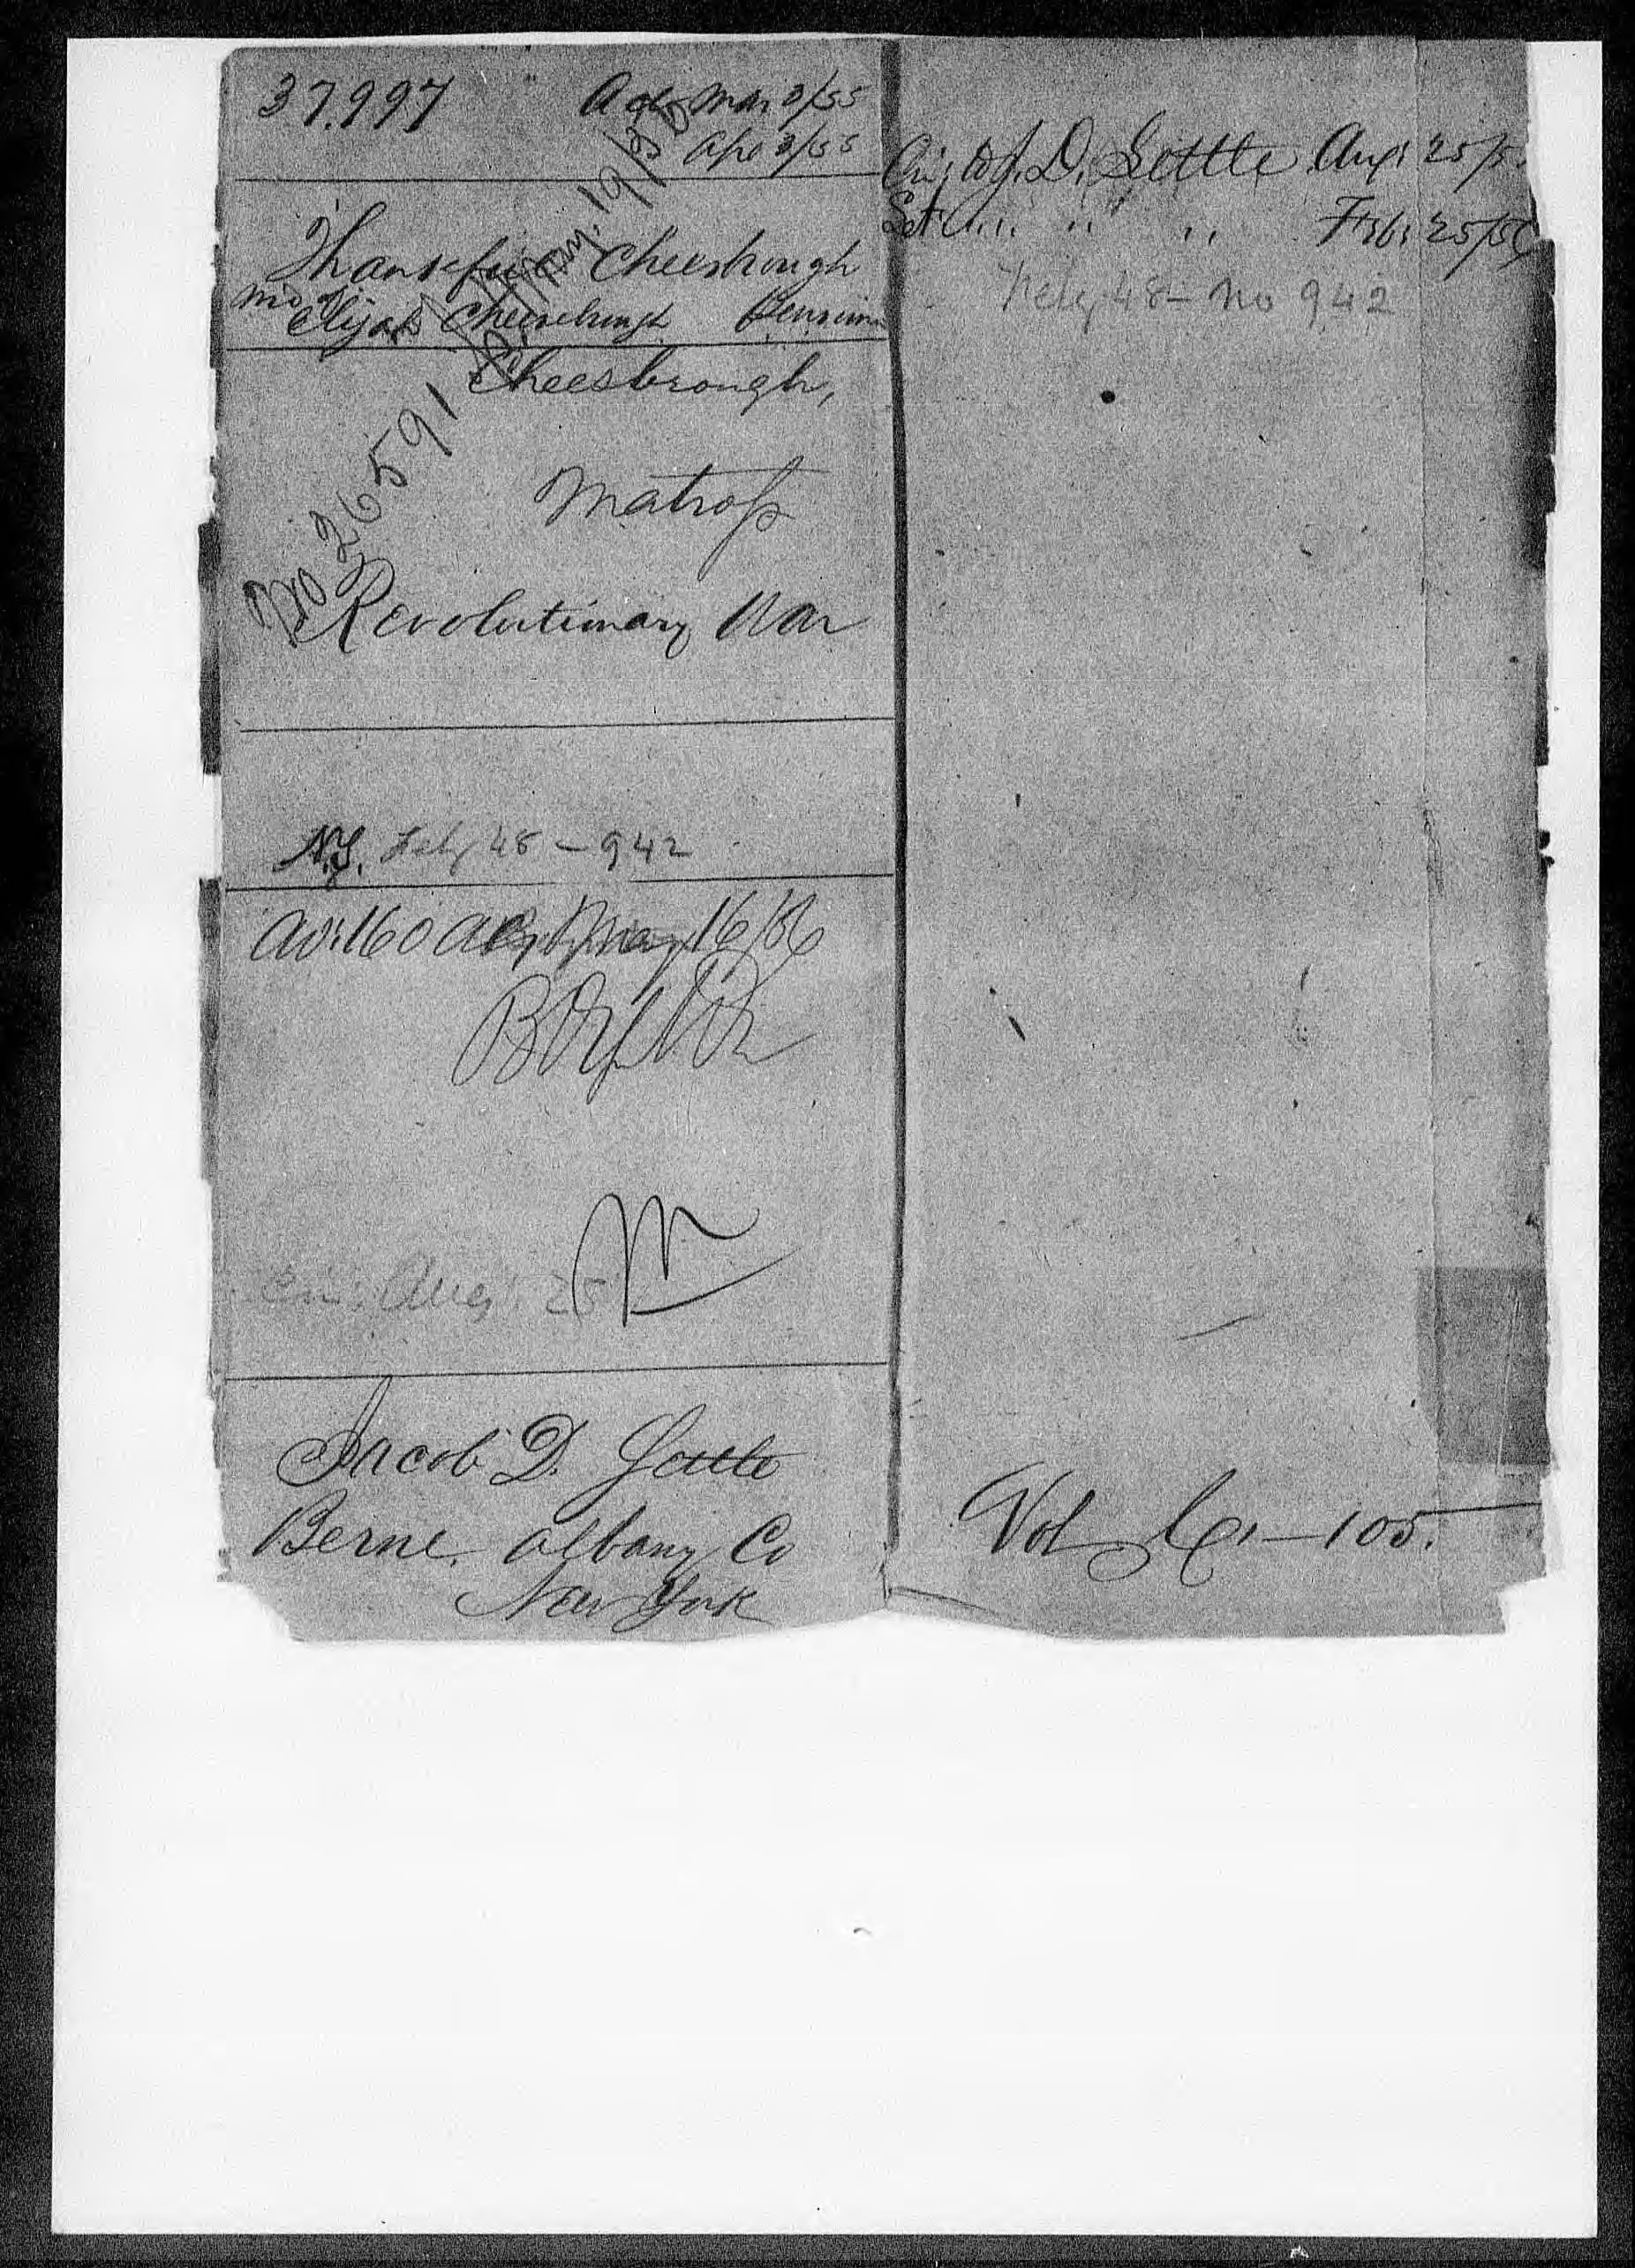 37.997 Act Mar 3/55
Apr 3/55
Thankful Cheesbrough
Elijah Cheesebrugh Pension
Cheesbrough,
Matross
Revolutionary War
No 26591 May. 19/56
N.Y. Feby 48 - 942
160 May 16/56
Aug. 25
Jacob D. Settle
Berne. Albany Co
New York
J. D. Settle Aug: 25/5
" " " Feb: 25/56
Feby 48 - No 942
Vol C. - 105.